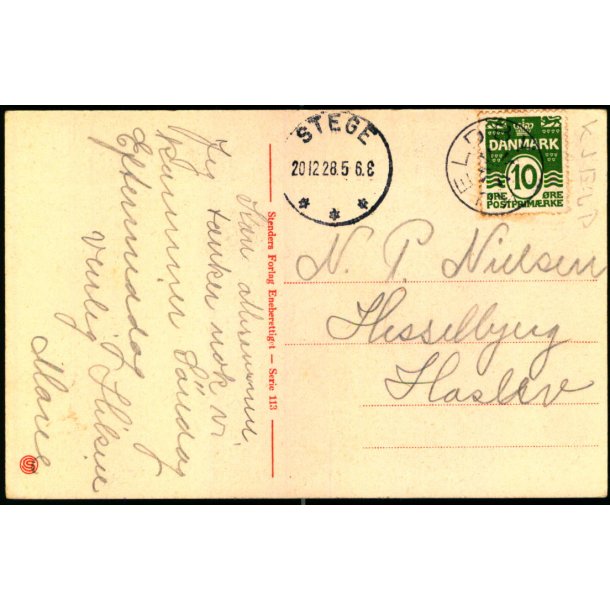 STEGE
20 12 28. 5 6. E
DANMARK
10
ØRE ØRE
POSTFRIMÆRKE
KJELD
N. P. Nielsen
Hesselbjerg
Haslev
Stenders Forlag Eneberettiget – Serie 113
Kære
Jeg tænker nok vi
kommer Søndag
Eftermiddag
venlig Hilsen
Marie